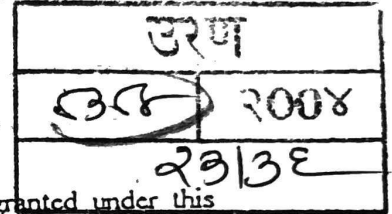 उरण
२००४
२३/३६
granted under this